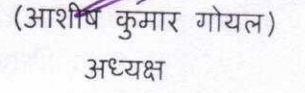 (आशीष कुमार गोयल)
अध्यक्ष